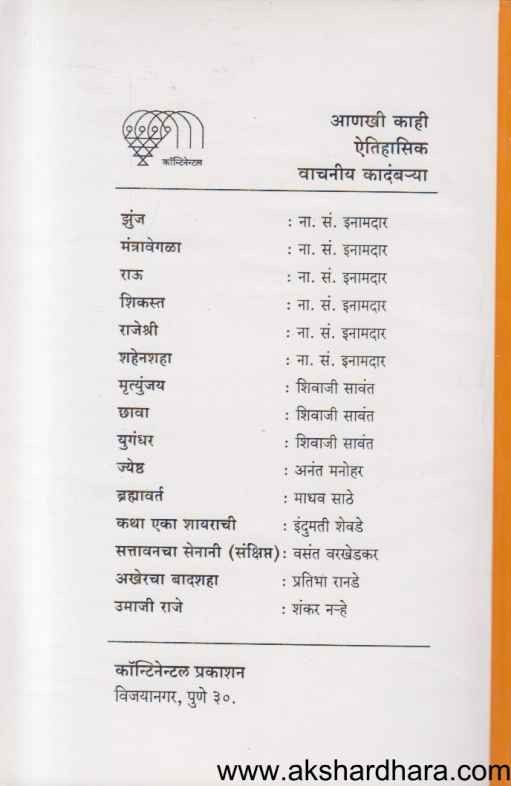 आणखी काही
ऐतिहासिक
वाचनीय कादंबऱ्या
कॉन्टिनेन्टल
झुंज : ना. सं. इनामदार
मंत्रावेगळा : ना. सं. इनामदार
राऊ : ना. सं. इनामदार
शिकस्त : ना. सं. इनामदार
राजेश्री : ना. सं. इनामदार
शहेनशहा : ना. सं. इनामदार
मृत्युंजय : शिवाजी सावंत
छावा : शिवाजी सावंत
युगंधर : शिवाजी सावंत
ज्येष्ठ : अनंत मनोहर
ब्रह्मावर्त : माधव साठे
कथा एका शायराची : इंदुमती शेवडे
सत्तावनचा सेनानी (संक्षिप्त) : वसंत वरखेडकर
अखेरचा बादशहा : प्रतिभा रानडे
उमाजी राजे : शंकर नऱ्हे
कॉन्टिनेन्टल प्रकाशन
विजयानगर, पुणे ३०.
www.akshardhara.com